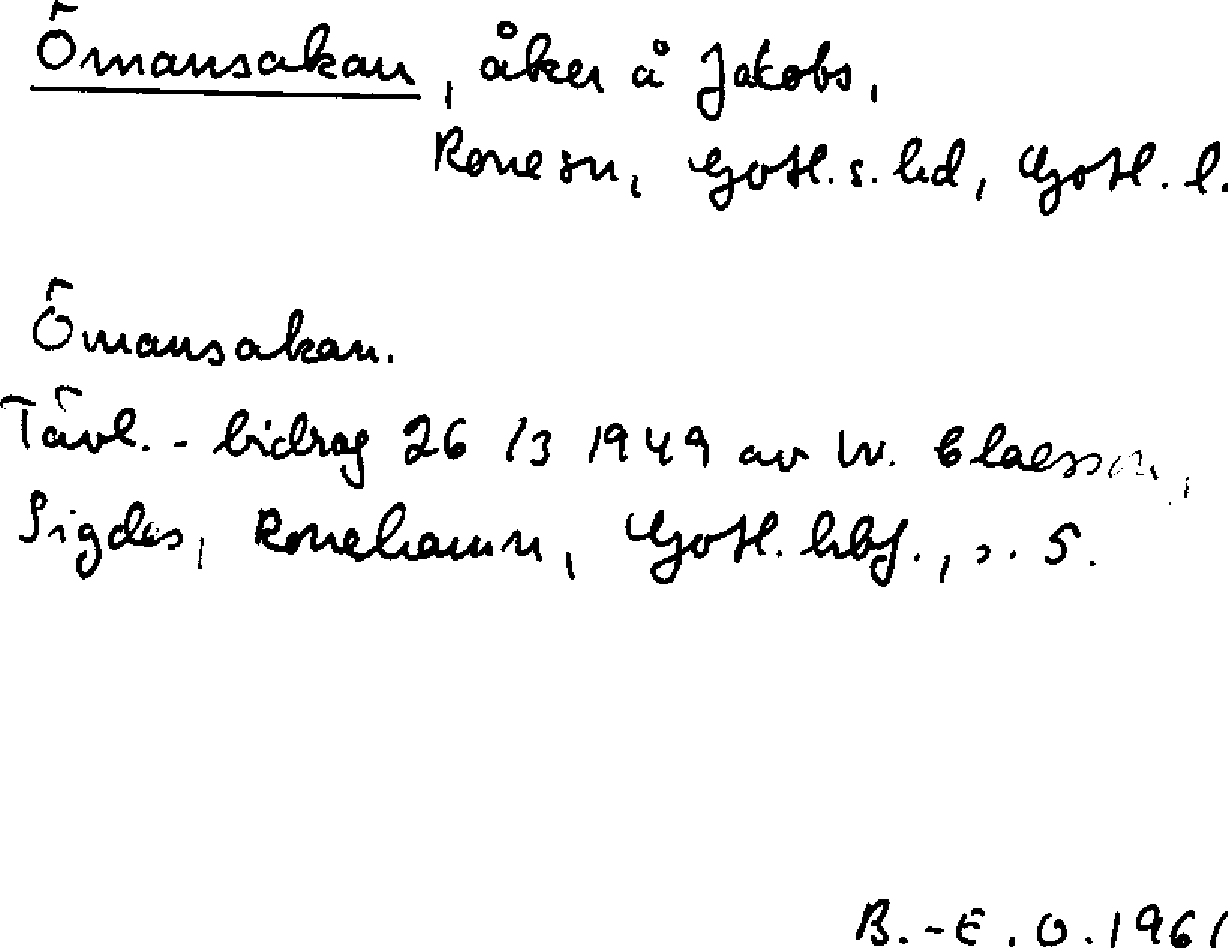 Ömansakan, åker å Jakobs,
Rone sn, Gotl. s. hd, Gotl. l.
Ömansakan.
Tävl.-bidrag 26/3 1949 av W. Claesson,
Sigdes, Ronehamn, Gotl. hbf., s. 5.
B.-E. O. 1961